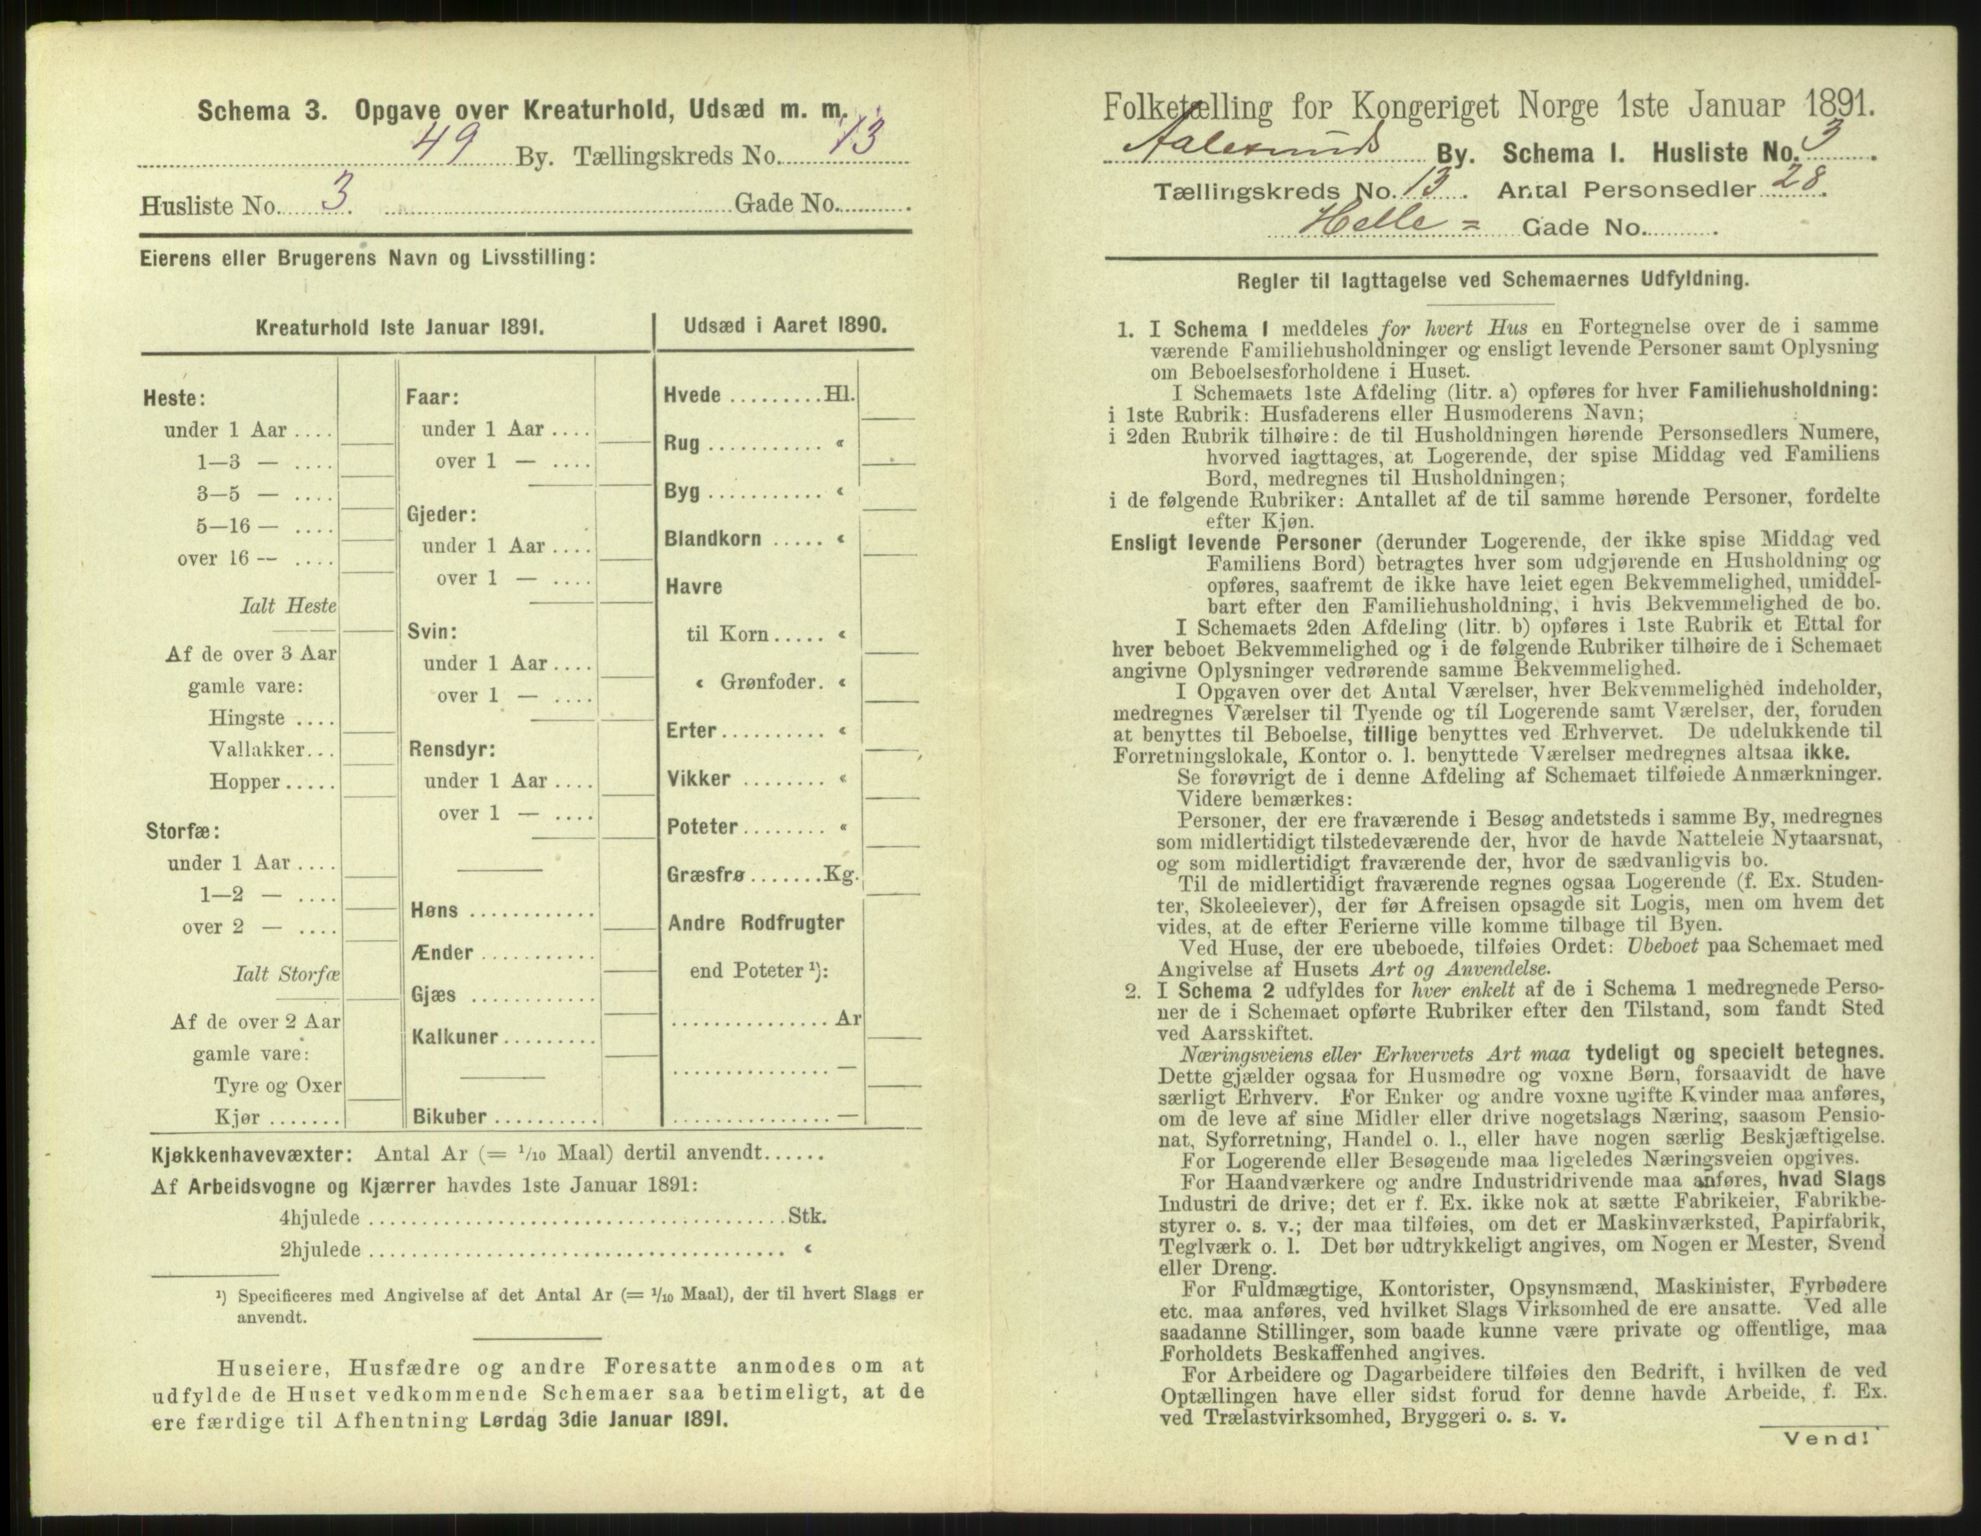 Schema 3. Opgave over Kreaturhold, Udsæd m. m.
49 By. Tællingskreds No. 13
Husliste No. 3. Gade No.
Eierens eller Brugerens Navn og Livsstilling:
Kreaturhold 1ste Januar 1891.
Heste:
under 1 Aar ....
1—3 — ....
3—5 — ....
5—16 — ....
over 16 — ....
Ialt Heste
Af de over 3 Aar
gamle vare:
Hingste ....
Vallakker...
Hopper.....
Storfæ:
under 1 Aar ....
1—2 — ....
over 2 — ....
Ialt Storfæ
Af de over 2 Aar
gamle vare:
Tyre og Oxer
Kjør .......
Faar:
under 1 Aar ....
over 1 — ....
Gjeder:
under 1 Aar ....
over 1 — ....
Svin:
under 1 Aar ....
over 1 — ....
Rensdyr:
under 1 Aar ....
over 1 — ....
Høns ...........
Ænder ...........
Gjæs ...........
Kalkuner.........
Bikuber ..........
Udsæd i Aaret 1890.
Hvede .........Hl.
Rug ........... «
Byg ........... «
Blandkorn ..... «
Havre
til Korn..... «
« Grønfoder. «
Erter.......... «
Vikker ........ «
Poteter........ «
Græsfrø.......Kg.
Andre Rodfrugter
end Poteter ¹):
............... Ar
............... —
............... —
Kjøkkenhavevæxter: Antal Ar (= 1/10 Maal) dertil anvendt......
Af Arbeidsvogne og Kjærrer havdes 1ste Januar 1891:
4hjulede ..................................... Stk.
2hjulede ..................................... «
¹) Specificeres med Angivelse af det Antal Ar (= 1/10 Maal), der til hvert Slags er
anvendt.
Huseiere, Husfædre og andre Foresatte anmodes om at
udfylde de Huset vedkommende Schemaer saa betimeligt, at de
ere færdige til Afhentning Lørdag 3die Januar 1891.
Folketælling for Kongeriget Norge 1ste Januar 1891.
Aalesunds By. Schema I. Husliste No. 3.
Tællingskreds No. 13. Antal Personsedler 28.
Helle= Gade No.
Regler til Iagttagelse ved Schemaernes Udfyldning.
1. I Schema 1 meddeles for hvert Hus en Fortegnelse over de i samme
værende Familiehusholdninger og ensligt levende Personer samt Oplysning
om Beboelsesforholdene i Huset.
I Schemaets 1ste Afdeling (litr. a) opføres for hver Familiehusholdning:
i 1ste Rubrik: Husfaderens eller Husmoderens Navn;
i 2den Rubrik tilhøire: de til Husholdningen hørende Personsedlers Numere,
hvorved iagttages, at Logerende, der spise Middag ved Familiens
Bord, medregnes til Husholdningen;
i de følgende Rubriker: Antallet af de til samme hørende Personer, fordelte
efter Kjøn.
Ensligt levende Personer (derunder Logerende, der ikke spise Middag ved
Familiens Bord) betragtes hver som udgjørende en Husholdning og
opføres, saafremt de ikke have leiet egen Bekvemmelighed, umiddel-
bart efter den Familiehusholdning, i hvis Bekvemmelighed de bo.
I Schemaets 2den Afdeling (litr. b) opføres i 1ste Rubrik et Ettal for
hver beboet Bekvemmelighed og i de følgende Rubriker tilhøire de i Schemaet
angivne Oplysninger vedrørende samme Bekvemmelighed.
I Opgaven over det Antal Værelser, hver Bekvemmelighed indeholder,
medregnes Værelser til Tyende og til Logerende samt Værelser, der, foruden
at benyttes til Beboelse, tillige benyttes ved Erhvervet. De udelukkende til
Forretningslokale, Kontor o. l. benyttede Værelser medregnes altsaa ikke.
Se forøvrigt de i denne Afdeling af Schemaet tilføiede Anmærkninger.
Videre bemærkes:
Personer, der ere fraværende i Besøg andetsteds i samme By, medregnes
som midlertidigt tilstedeværende der, hvor de havde Natteleie Nytaarsnat,
og som midlertidigt fraværende der, hvor de sædvanligvis bo.
Til de midlertidigt fraværende regnes ogsaa Logerende (f. Ex. Studen-
ter, Skoleelever), der før Afreisen opsagde sit Logis, men om hvem det
vides, at de efter Ferierne ville komme tilbage til Byen.
Ved Huse, der ere ubeboede, tilføies Ordet: Ubeboet paa Schemaet med
Angivelse af Husets Art og Anvendelse.
2. I Schema 2 udfyldes for hver enkelt af de i Schema 1 medregnede Perso-
ner de i Schemaet opførte Rubriker efter den Tilstand, som fandt Sted
ved Aarsskiftet.
Næringsveiens eller Erhvervets Art maa tydeligt og specielt betegnes.
Dette gjælder ogsaa for Husmødre og voxne Børn, forsaavidt de have
særligt Erhverv. For Enker og andre voxne ugifte Kvinder maa anføres,
om de leve af sine Midler eller drive nogetslags Næring, saasom Pensio-
nat, Syforretning, Handel o. l., eller have nogen særlig Beskjæftigelse.
For Logerende eller Besøgende maa ligeledes Næringsveien opgives.
For Haandværkere og andre Industridrivende maa anføres, hvad Slags
Industri de drive; det er f. Ex. ikke nok at sætte Fabrikeier, Fabrikbe-
styrer o. s. v.; der maa tilføies, om det er Maskinværksted, Papirfabrik,
Teglværk o. l. Det bør udtrykkeligt angives, om Nogen er Mester, Svend
eller Dreng.
For Fuldmægtige, Kontorister, Opsynsmænd, Maskinister, Fyrbødere
etc. maa anføres, ved hvilket Slags Virksomhed de ere ansatte. Ved alle
saadanne Stillinger, som baade kunne være private og offentlige, maa
Forholdets Beskaffenhed angives.
For Arbeidere og Dagarbeidere tilføies den Bedrift, i hvilken de ved
Optællingen have eller sidst forud for denne havde Arbeide, f. Ex.
ved Trælastvirksomhed, Bryggeri o. s. v.
Vend!